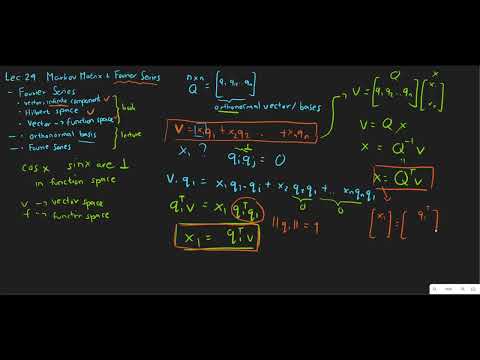 Lec 29 Markov Matrix & Fourier Series
- Fourier Series
- vector, infinite component ✓
- Hilbert space ✓
- Vector → function space
book
- orthonormal basis
- Fourier Series
lecture
cos x sin x are ⊥
in function space
v → vector space
f → function space
n×n
Q = [q₁ q₂ ... qₙ]
orthonormal vector/bases
v = x₁q₁ + x₂q₂ ... + xₙqₙ
x₁ ? qᵢqⱼ = 0
v·q₁ = x₁q₁·q₁ + x₂·q₂q₁ + ... xₙqₙq₁
0 0
q₁ᵀv = x₁ q₁ᵀq₁
||q₁|| = 1
x₁ = q₁ᵀv
Q x
v = [q₁ q₂ ... qₙ] [x₁ ... xₙ]
v = Q x
x = Q⁻¹v
x = Qᵀv
[x₁] = [q₁ᵀ]